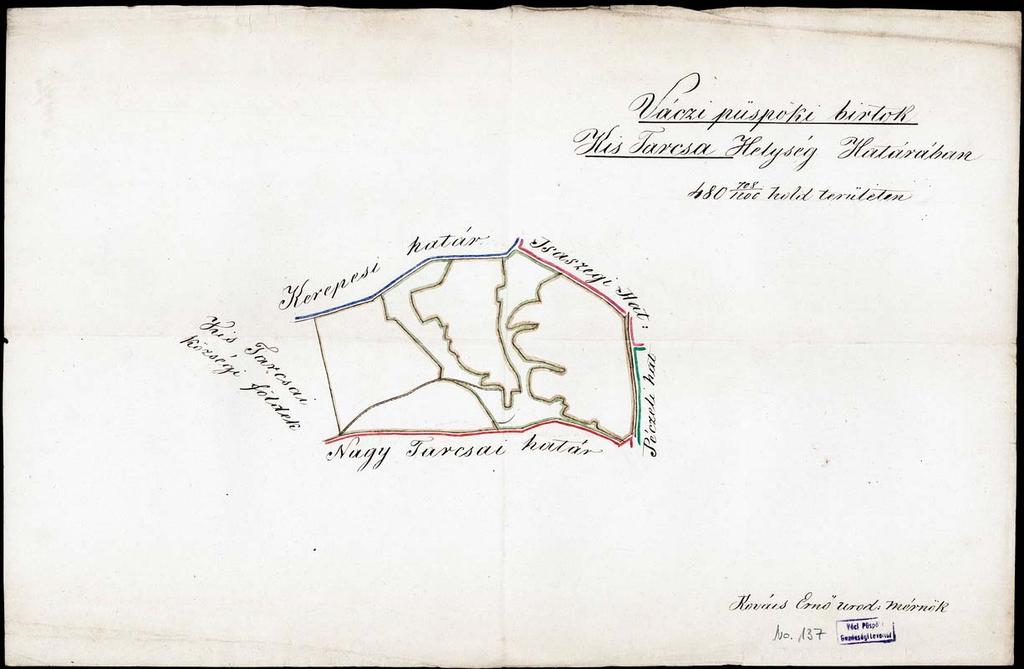 Váczi püspöki birtok
Kis Tarcsa Helység Határában
480 708/1200 hold területen
Kerepesi határ
Isaszegi Hat:
Kis Tarcsai
községi földek
Péczeli hat
Nagy Tarcsai határ
Kovács Ernő urod. mérnök
No. 137
Váci Püspöki
Gazdasági Levéltár